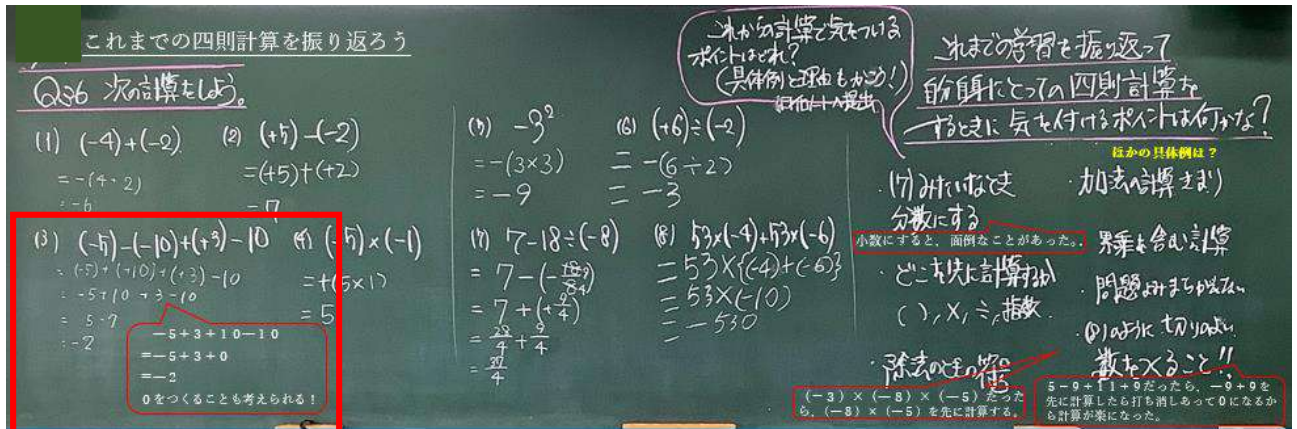 これまでの四則計算を振り返ろう
Q36 次の計算をしよう。
(1) (-4)+(-2)
=-(4+2)
=-6
(2) (+5)-(-2)
=(+5)+(+2)
=7
(3) (-5)-(-10)+(+3)-10
=(-5)+(+10)+(+3)-10
=-5+10+3-10
=5-7
=-2
－5＋3＋10－10
＝－5＋3＋0
＝－2
0をつくることも考えられる！
(4) (-5)×(-1)
=+(5×1)
=5
(5) -3²
=-(3×3)
=-9
(6) (+6)÷(-2)
=-(6÷2)
=-3
(7) 7-18÷(-8)
=7-(-18/8)
=7+(+9/4)
=28/4+9/4
=37/4
(8) 53×(-4)+53×(-6)
=53×{(-4)+(-6)}
=53×(-10)
=-530
これからの計算で気をつける
ポイントはどれ?
(具体例と理由もかこう!)
へ提出
これまでの学習を振り返って
自分自身にとっての四則計算を
するときに気を付けるポイントは何かな?
ほかの具体例は？
・(7)みたいなとき
分数にする
小数にすると、面倒なことがあった。
・どこを先に計算するか
( ), ×, ÷, 指数
・除法のときの符号
（－3）×（－8）×（－5）だった
ら、（－8）×（－5）を先に計算する。
・加法の計算きまり
累乗を含む計算
・問題よみまちがえない
・(8)のように切りのよい
数をつくること!!
5－9＋11＋9だったら、－9＋9を
先に計算したら打ち消しあって0になるか
ら計算が楽になった。